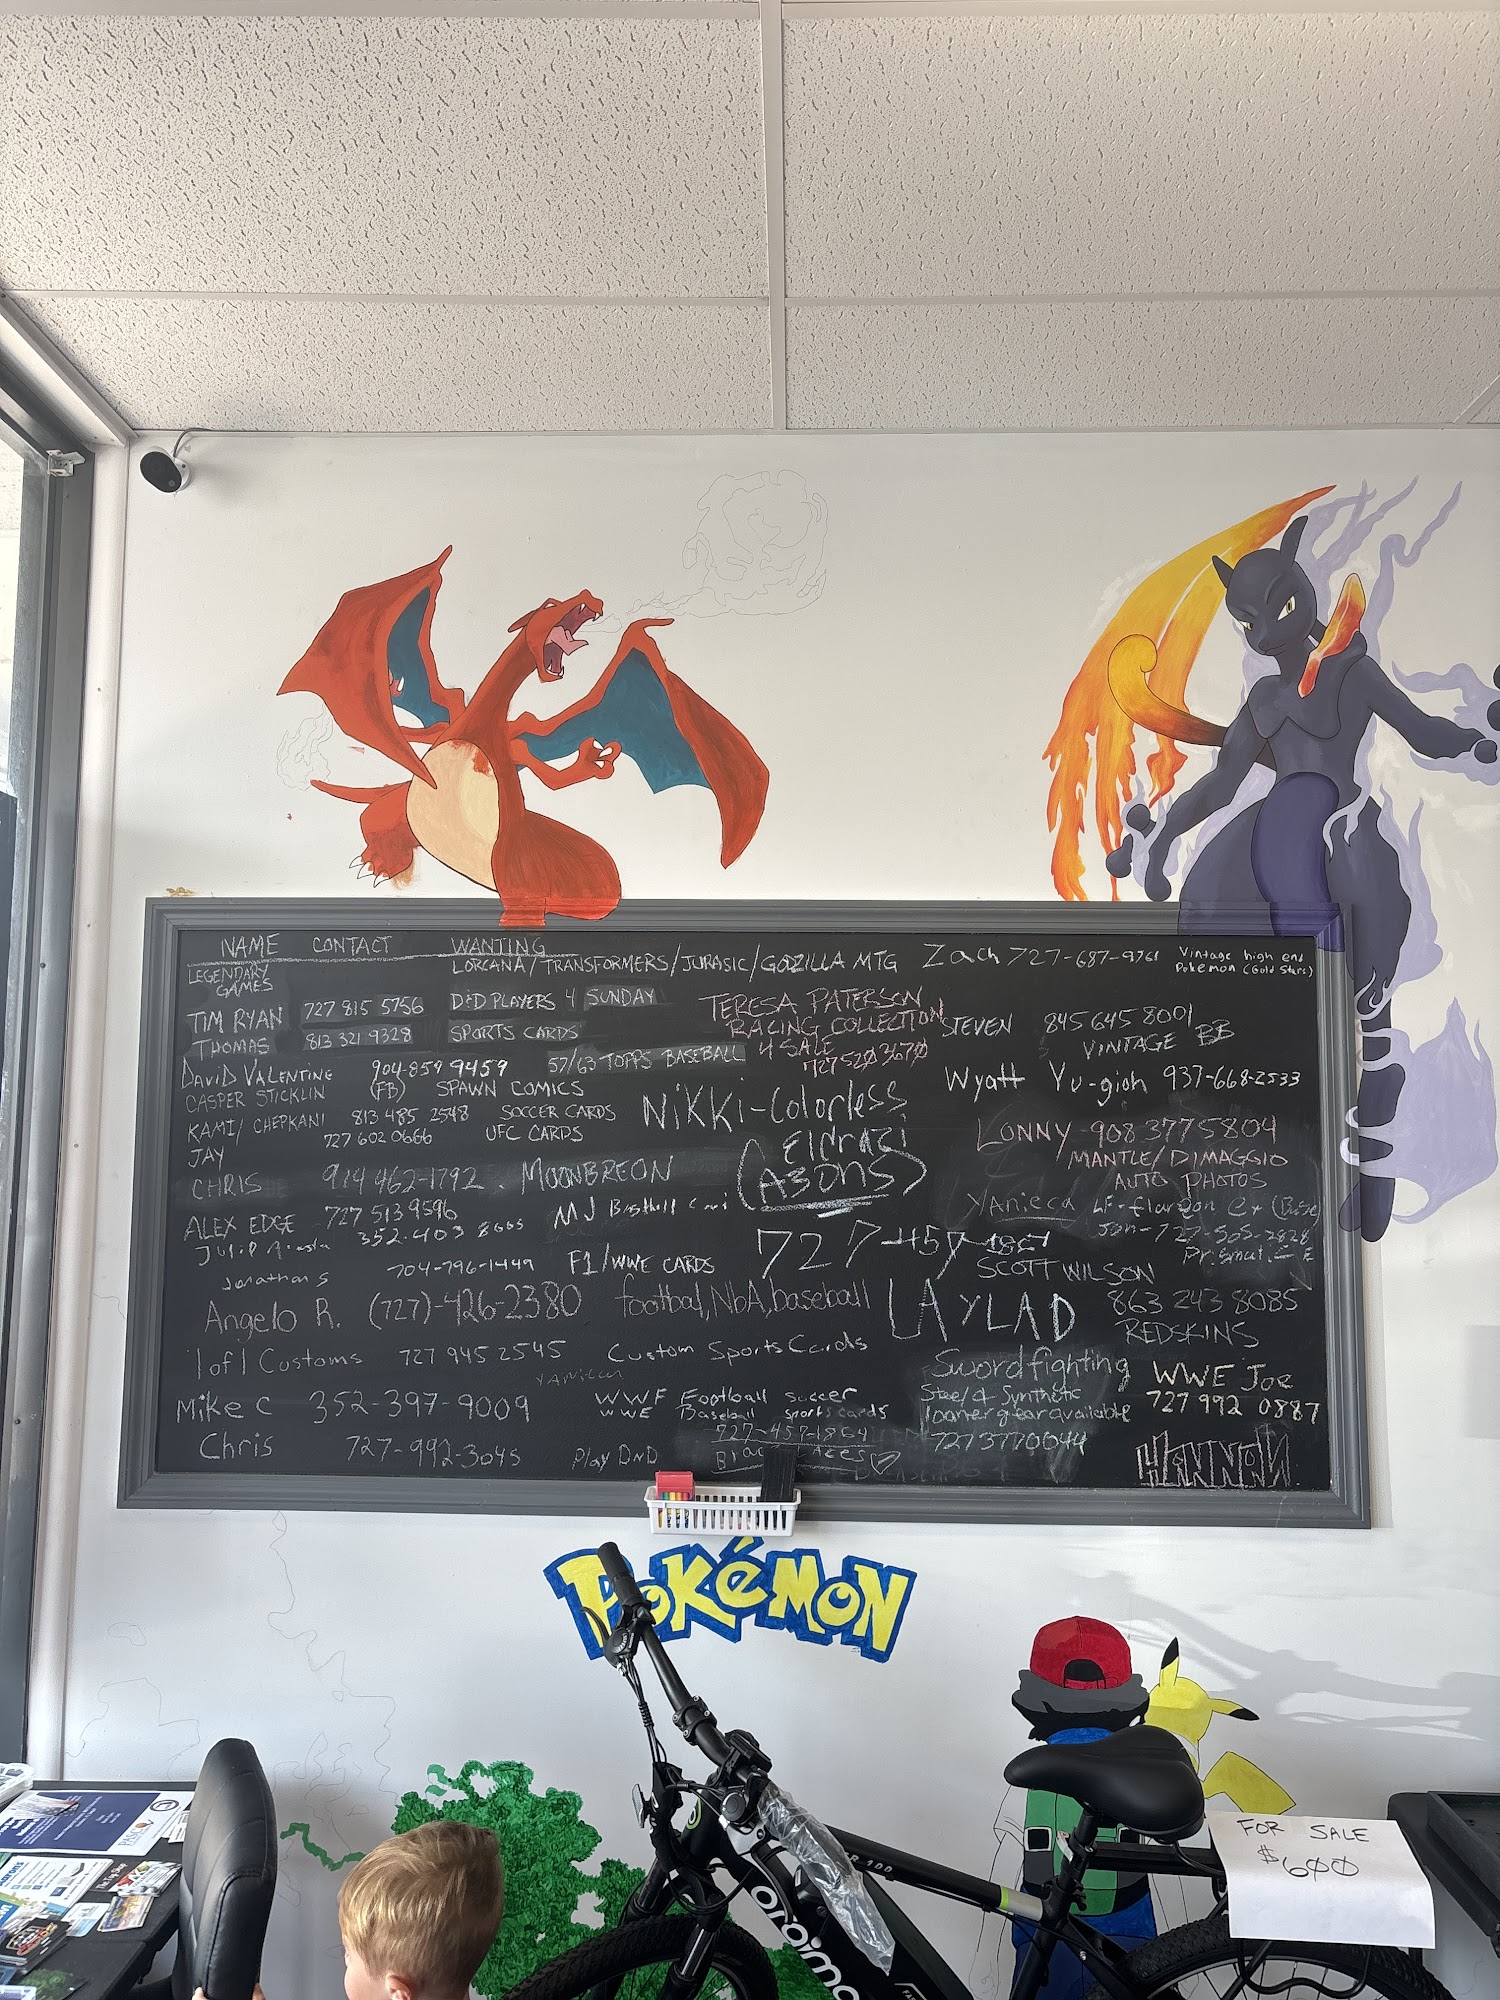 NAME CONTACT WANTING
LEGENDARY GAMES LORCANA/TRANSFORMERS/JURASIC/GODZILLA MTG
TIM RYAN 727 815 5756 D&D PLAYERS 4 SUNDAY
THOMAS 813 321 9328 SPORTS CARDS
DAVID VALENTINE 904-859 9459 57/63 TOPPS BASEBALL
CASPER STICKLIN (FB) SPAWN COMICS
KAMI/CHEPKANI 813 485 2548 SOCCER CARDS
JAY 727 602 0666 UFC CARDS
CHRIS 914 462-1792 MOONBREON
ALEX EDGE 727 513 9596
352-403 MJ
Jonathan S 704-796-1449 F1/WWE CARDS
Angelo R. (727)-426-2380 football, NbA, baseball
1 of 1 Customs 727 945 2545 Custom Sports Cards
Mike C 352-397-9009 WWF Football soccer
WWE Baseball sports cards
Chris 727-992-3045 Play DND
727-457-1864
TERESA PATERSON
RACING COLLECTION
4 SALE
727 520 3670
NiKKi-Colorless
Eldrazi
727-457-
LAYLAD
Zach 727-687-9761 Vintage high end
Pokemon (Gold Stars)
STEVEN 845 645 8001
VINTAGE BB
Wyatt Yu-gioh 937-668-2533
LONNY 908 377 5804
MANTLE/DIMAGGIO
AUTO PHOTOS
YAniecca
Jon-727-505-2828
SCOTT WILSON
863 243 8085
REDSKINS
Swordfighting
Steel & Synthetic
loaner gear available
727 377 0044
WWE Joe
727 992 0887
HANNAH
POKéMON
FOR SALE
$600
oraimo